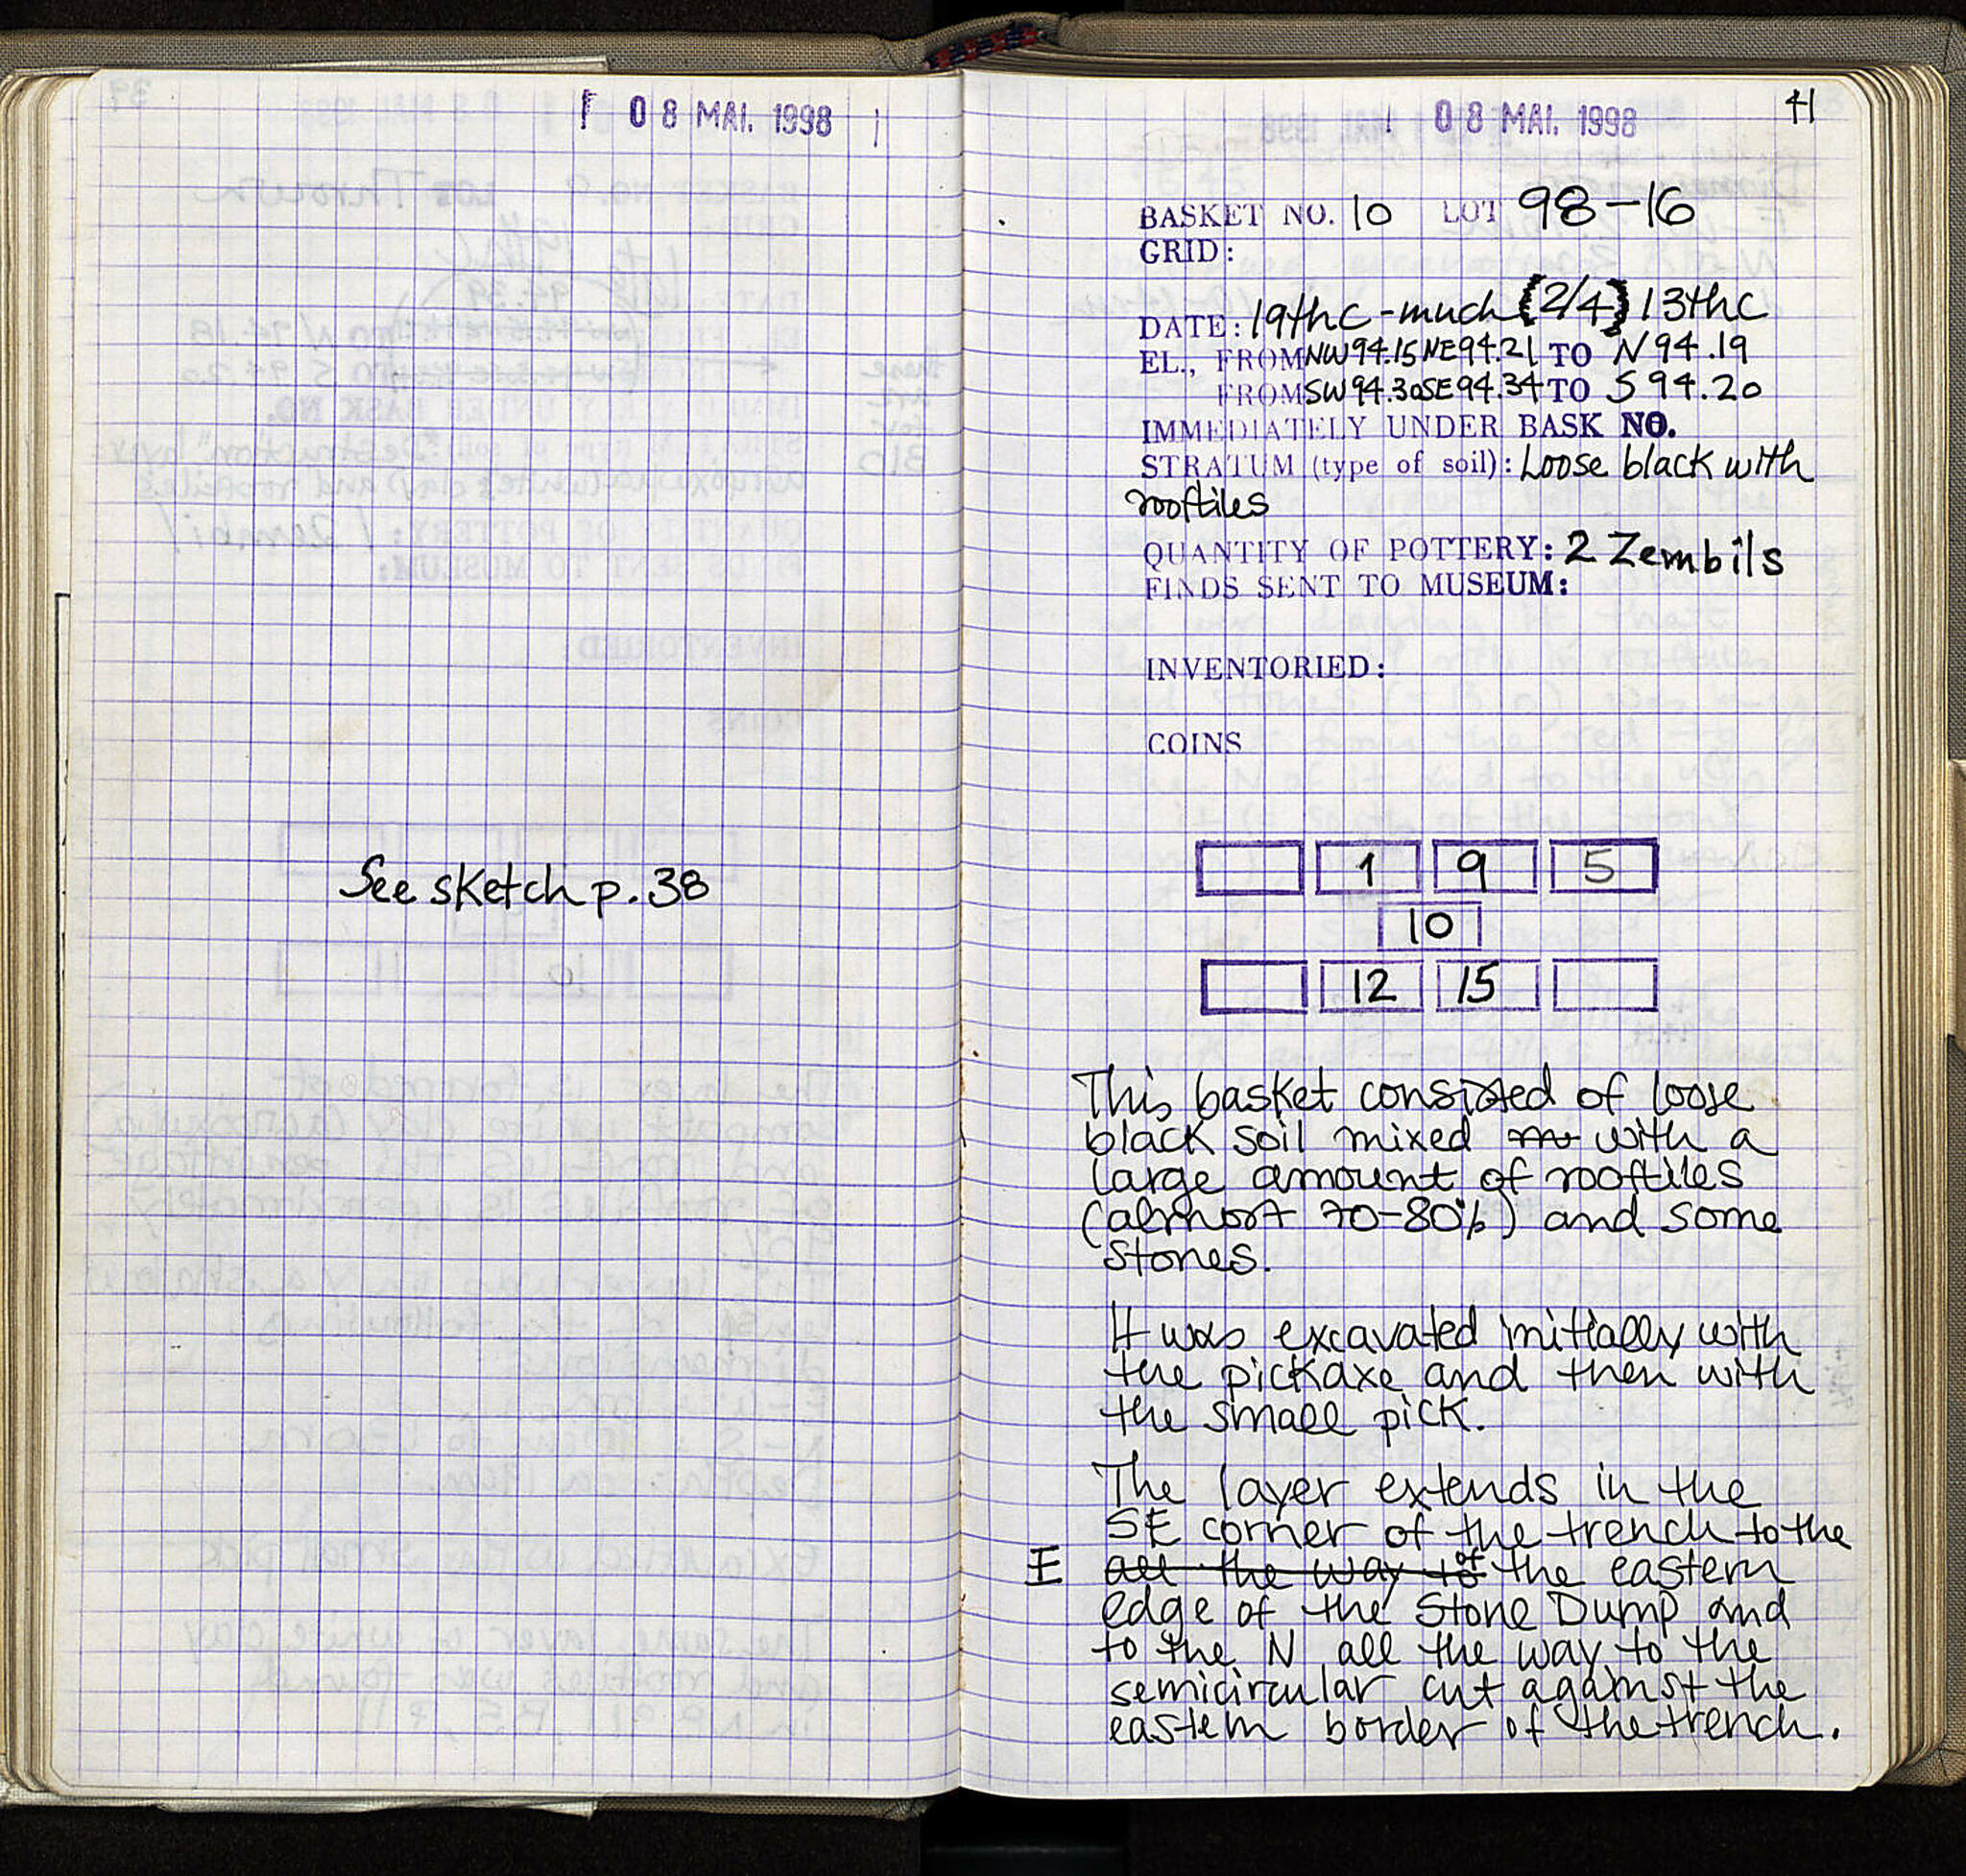 08 MAI. 1998
See sketch p. 38
08 MAI. 1998
41
BASKET NO. 10 LOT 98-16
GRID:
DATE: 19thc - much (2/4) 13thc
EL., FROM NW94.15 NE94.21 TO N 94.19
FROM SW 94.30 SE 94.34 TO S 94.20
IMMEDIATELY UNDER BASK NO.
STRATUM (type of soil): Loose black with
rooftiles
QUANTITY OF POTTERY: 2 Zembils
FINDS SENT TO MUSEUM:
INVENTORIED:
COINS
1 9 5
10
12 15
This basket consisted of loose
black soil mixed with a
large amount of rooftiles
(almost 70-80%) and some
stones.
It was excavated initially with
the pickaxe and then with
the small pick.
The layer extends in the
SE corner of the trench to the
I all the way to of the eastern
edge of the Stone Dump and
to the N all the way to the
semicircular cut against the
eastern border of the trench.